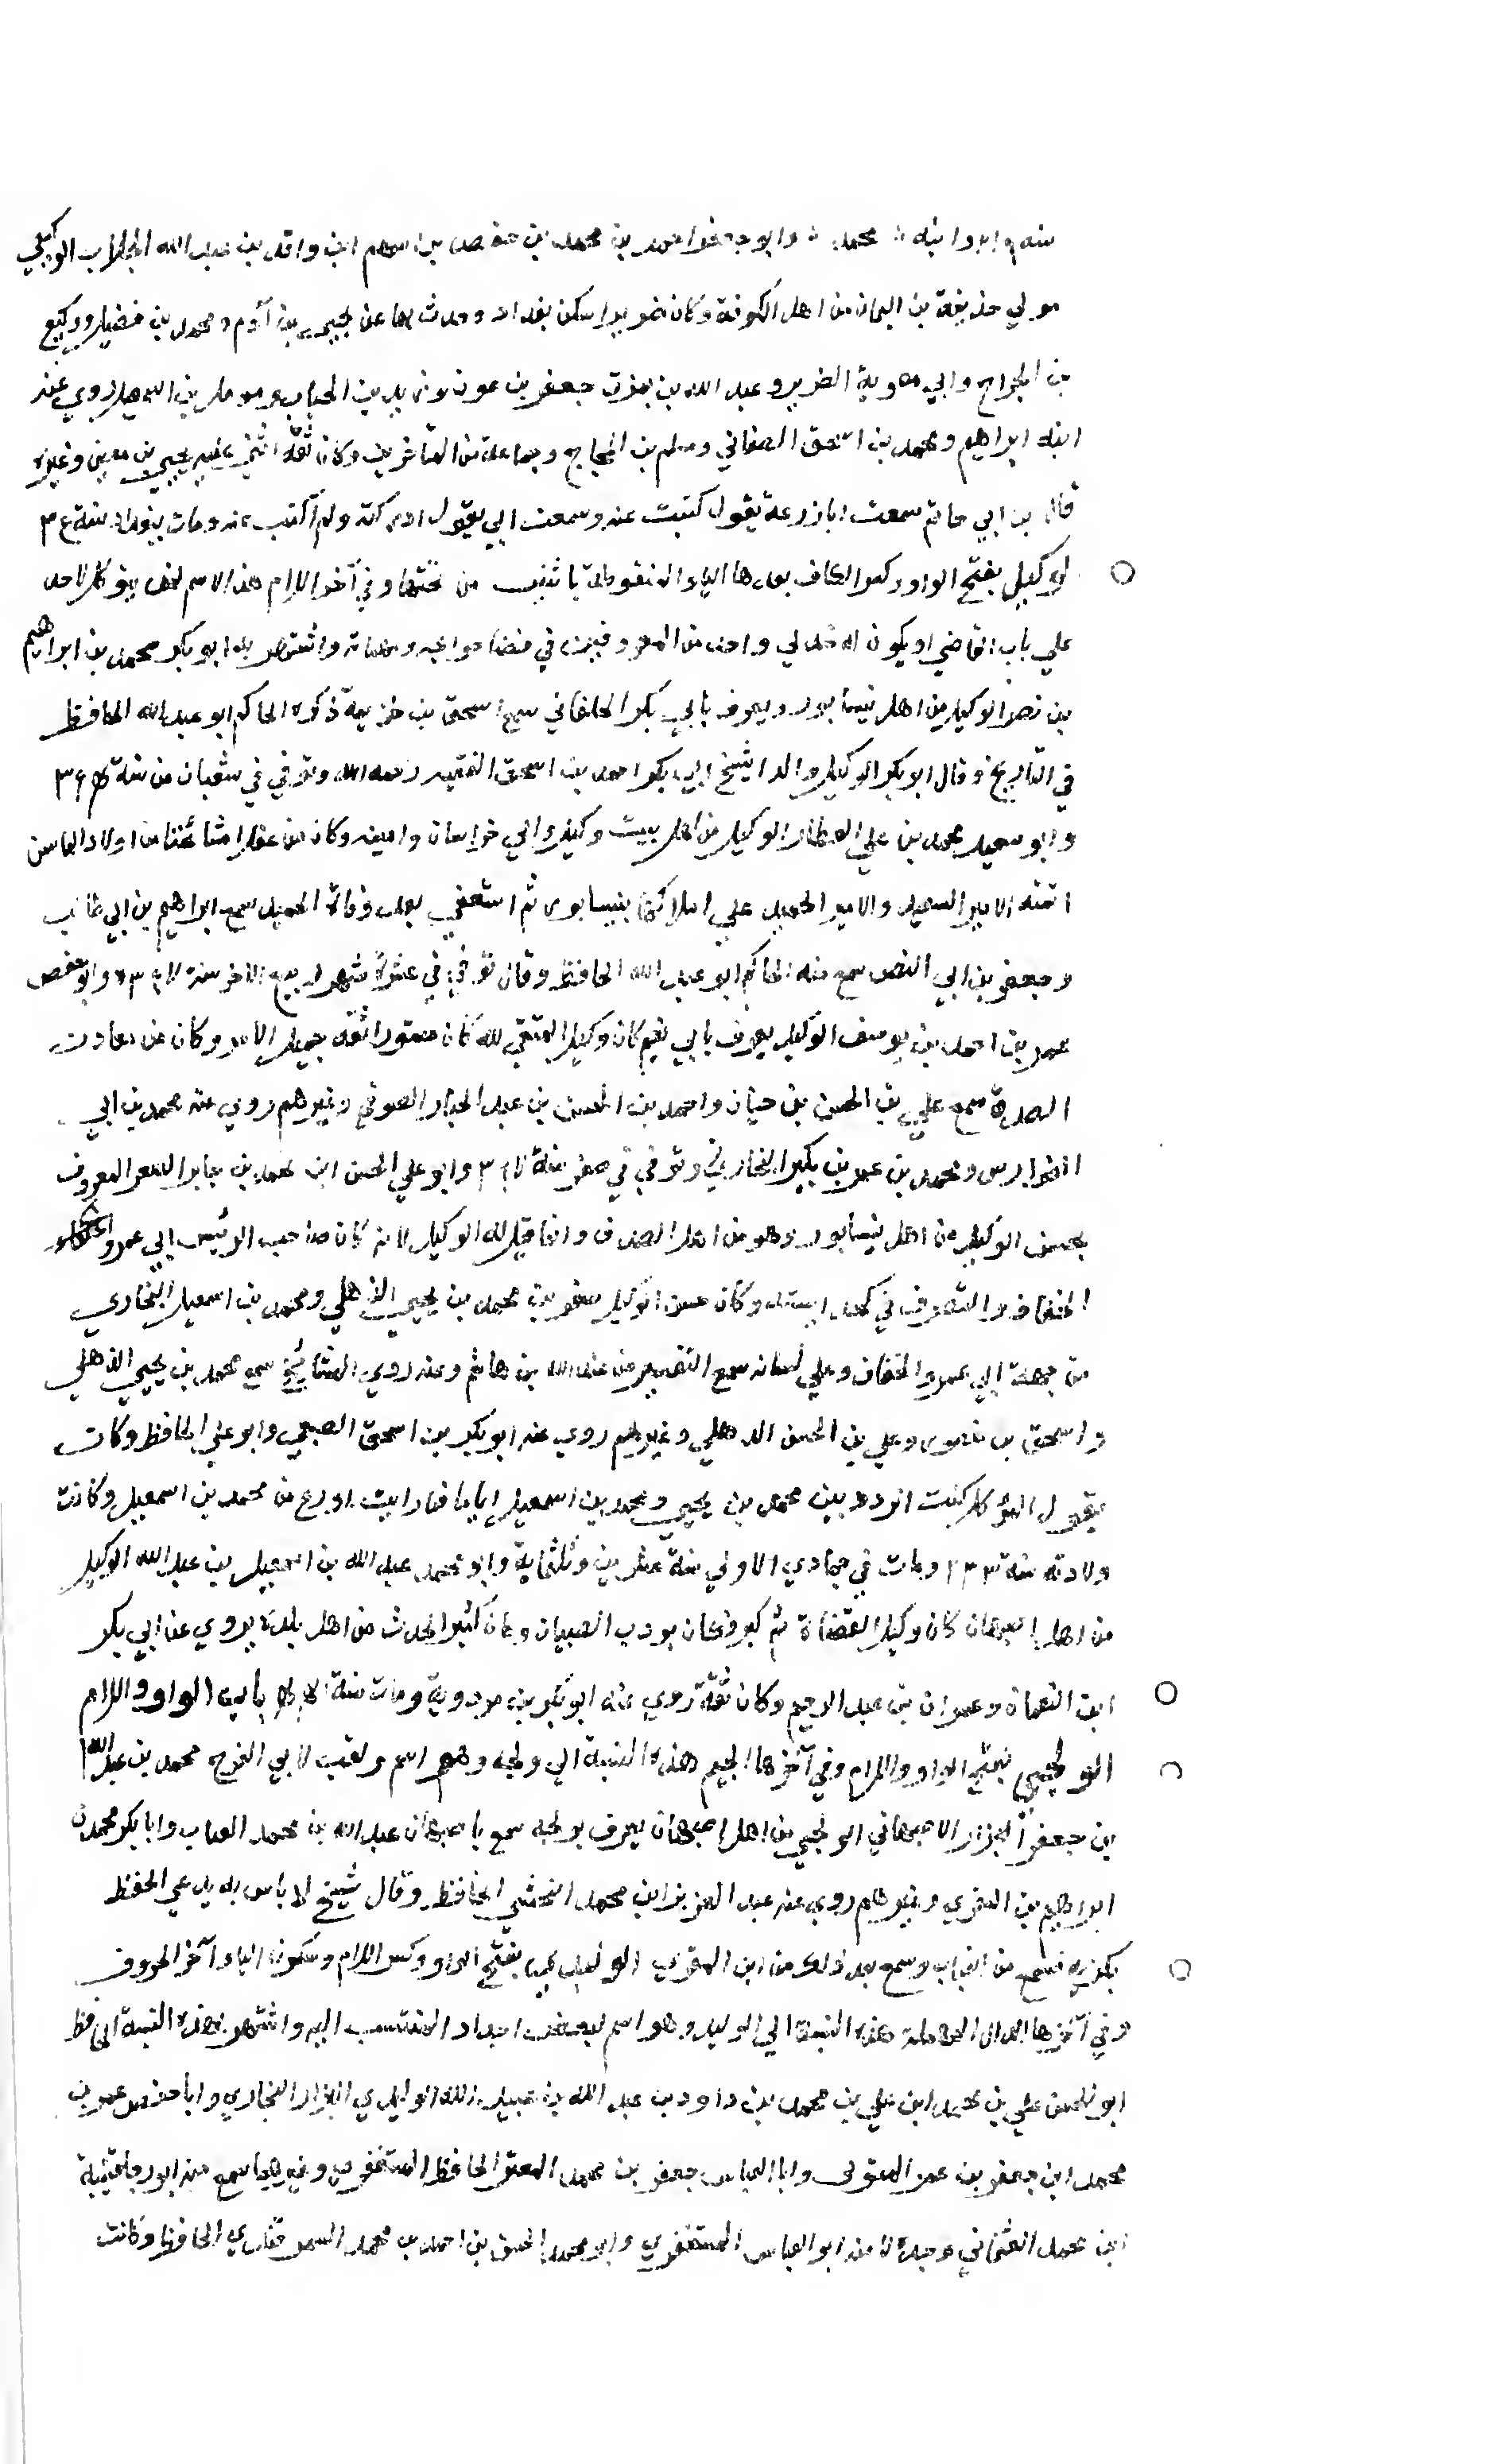 سنه وابو ابنه محمد وابو جعفر احمد بن محمد بن حفص بن ابن واقد بن عبد الله الجلاب الوكيعي
مولي حذيفة بن اليمان من اهل الكوفة وكان ضريرا سكن بغداد وحدث بها عن يحيي بن آدم ومحمد بن فضيل ووكيع
بن الجراح وابي معوية الضرير وعبد الله بن نمير جعفر بن عون وزيد بن الحباب ومومل بن اسمعيل روي عنه
ابنه ابراهيم ومحمد بن اسحق الصغاني ومسلم بن الحجاج وجماعة من المتاخرين وكان ثقة اثني عليه يحيي بن معين وغيره
قال بن ابي حاتم سمعت ابا زرعة يقول كتبت عنه وسمعت ابي يقول ادركته ولم اكتب عنه ومات ببغداد سنة
الوكيل بفتح الواو وكسر الكاف بعدها الياء المنقوطة باثنين من تحتها وفي آخر اللام هذا الاسم لمن يتوكل لاحد
علي باب القاضي او يكون له لي واحد من المعروفين في قضا حوائجه ومهماته واشتهر به ابو بكر محمد بن ابراهيم
بن نصر الوكيل من اهل نيسابور ويعرف بابي بكر الحلقاني سمع اسحق بن خزيمة ذكره الحاكم ابو عبد الله الحافظ
في التاريخ وقال ابو بكر الوكيل والد الشيخ ابي بكر احمد بن اسحق الفقيه رحمه الله وتوفي في شعبان من سنة
وابو سعيد محمد بن علي العطار الوكيل من اهل بيت وكيل والي خراسان وامينه وكان من عقلا مشائخنا من اولاد الناس
اتمنه الامير السعيد والامير الحميد علي املاكها بنيسابور ثم استعفي بعد وفاة الحميد سمع ابراهيم بن ابي طالب
وجعفر بن ابي النصر سمع منه الحاكم ابو عبد الله الحافظ وقال توفي في عشرة شهر ربيع الاخر سنة وابو حفص
عمر بن احمد بن يوسف الوكيل يعرف بابي نعيم كان وكيل المتقي لله كان مستورا ثقة جميل الامر وكان من معادن
الصدق سمع علي بن الحسين بن حيان واحمد بن الحسن بن عبد الجبار الصوفي وغيرهم روي عنه محمد بن ابي
الفوارس ومحمد بن عمر بن بكير النجار وتوفي في صفر سنة وابو علي الحسن ابن محمد بن جابر المعروف
بحسن الوكيل من اهل نيسابور وهو من اهل الصدق وانما قيل له الوكيل لانه كان صاحب الرئيس ابي عمرو
الخفاف والتصرف في وكان حسن الوكيل سفير بين محمد بن يحيي الذهلي ومحمد بن اسمعيل البخاري
من جهة ابي عمرو الخفاف وعلي لسانه سمع التفسير من عبد الله بن هاشم وعنه روي المشايخ سمع محمد بن يحيي الذهلي
واسحق بن منصور وعلي بن الحسن الدهلي وغيرهم روي عنه ابو بكر بن اسحق الصبغي وابو علي الحافظ وكان
يقول المؤ كلن كنت اتردد بين محمد بن يحيي ومحمد بن اسمعيل اياما فما رايت اورع من محمد بن اسمعيل وكانت
ولادته سنة ٢٣٣ ومات في جمادي الاولي سنة عشرين وثلثماية وابو محمد عبد الله بن اسمعيل بن عبد الله الوكيل
من اهل اصبهان كان وكيل القضاة ثم كبر فكان يودب الصبيان وكان كثير الحديث من اهل بلده يروي عن ابي بكر
ابن النعمان وعمران بن عبد الرحيم وكان ثقة روي عنه ابو بكر بن مردوية ومات سنة باب الواو واللام
الولجي بفتح الواو واللام وفي آخرها الجيم هذه النسبة الي ولجه وهو اسم ولقب لابي الفرج محمد بن عبد الله
بن جعفر الجزار الاصبهاني الولجي من اهل اصبهان يعرف بولجه سمع باصبهان عبد الله بن محمد القباب وابا بكر محمد بن
ابراهيم بن المقري وغيرهم روي عنه عبد العزيز ابن محمد النخشبي الحافظ وقال شيخ لا باس به يدعي الحفظ
يكذبه سمع من القباب وسمع بعد ذلك من ابن المقري الوليدي بفتح الواو وكسر اللام وسكون الياء آخر الحروف
وفي آخرها الدال المهملة هذه النسبة الي الوليد وهو اسم لبعض اجداد المنتسب اليه واشتهر بهذه النسبة الحافظ
ابو الحسن علي بن محمد ابن علي بن محمد بن داود بن عبد الله بن عبيد الله الوليدي البزار البخاري وابا حفص عمر بن
محمد ابن جعفر بن عمر المتولي وابا العباس جعفر بن محمد المعتز الحافظ المستغفري وغيرهما سمع منه ابو رجا قتيبة
ابن محمد العثماني وحدث عنه ابو العباس المستغفري وابو محمد الحسن بن احمد بن محمد السمرقندي الحافظ وكانت